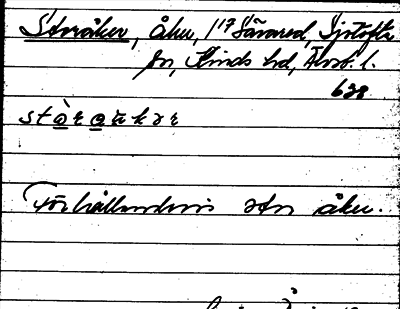 Storåker, åker, 1/17 Sävared, Sjötofta
sn, Kinds hd, Älvsb. l.
628
stò̱rα̱̊kər
Förhållandevis stor åker.